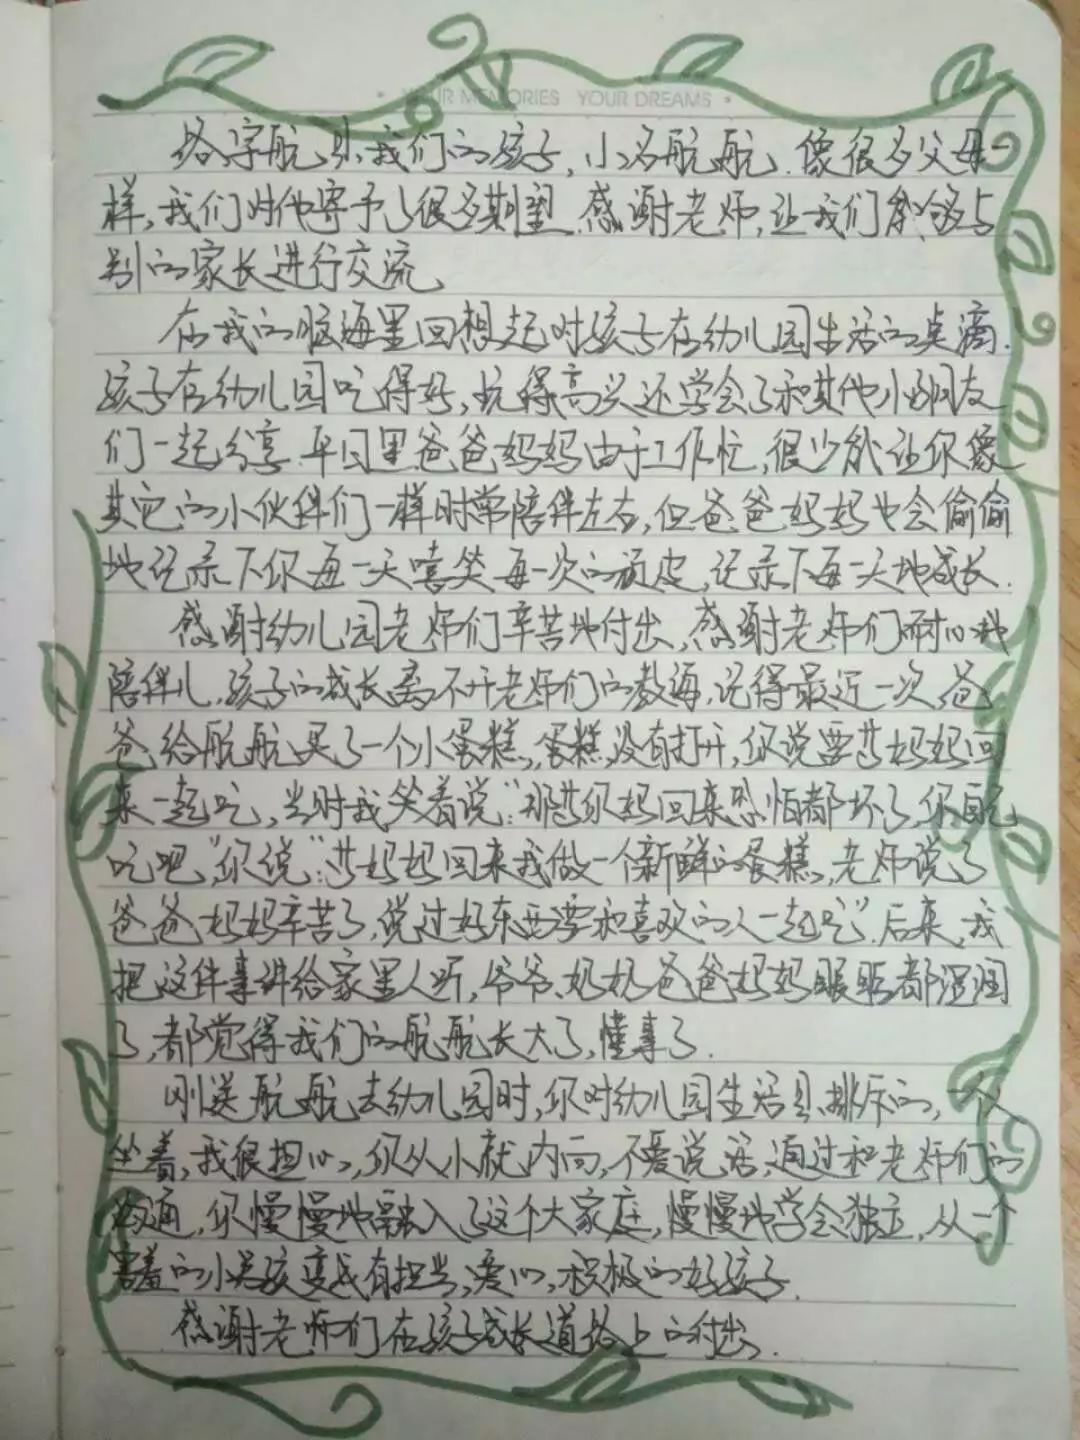 YOUR MEMORIES YOUR DREAMS
宇航是我们的孩子，小名航航.像很多父母一
样，我们对他寄予了很多期望.感谢老师，让我们能够与
别的家长进行交流、
在我的脑海里回想起对孩子在幼儿园生活的点滴.
孩子在幼儿园吃得好，玩得高兴还学会了和其他小朋友
们一起分享.平日里爸爸妈妈由于工作忙，很少能让你像
其它的小伙伴们一样时常陪伴左右，但爸爸妈妈也会偷偷
地记录下你每一天嘻笑每一次的顽皮，记录下每一天地成长.
感谢幼儿园老师们辛苦地付出，感谢老师们耐心地
陪伴儿，孩子的成长离不开老师们的教诲，记得最近一次爸
爸给航航买了一个小蛋糕，蛋糕没有打开，你说要等妈妈回
来一起吃，当时我笑着说：“那等你妈回来恐怕都坏了，你自己
吃吧，”你说：“等妈妈回来我做一个新鲜的蛋糕，老师说了
爸爸妈妈辛苦了，说过好东西要和喜欢的人一起吃”.后来，我
把这件事讲给家里人听，爷爷、奶奶爸爸妈妈眼眶都湿润
了，都觉得我们的航航长大了，懂事了.
刚送航航去幼儿园时，你对幼儿园生活是排斥的，一个人
坐着，我很担心，你从小就内向，不爱说话，通过和老师们的
沟通，你慢慢地融入了这个大家庭，慢慢地学会独立，从一个
害羞的小男孩变成有担当，爱心，积极的好孩子.
感谢老师们在孩子成长道路上的付出.